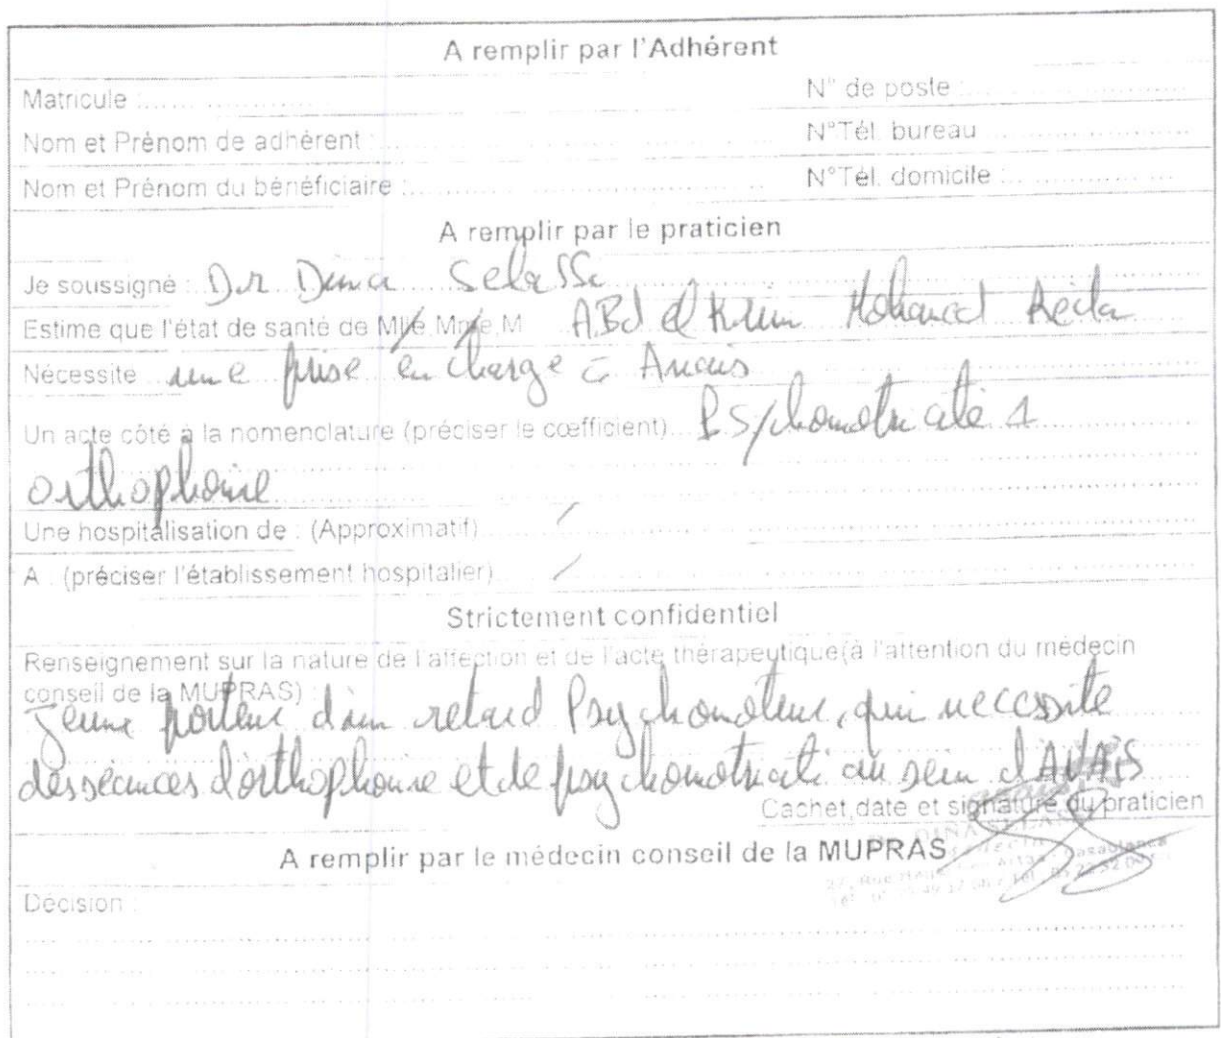 A remplir par l'Adhérent
Matricule :
N° de poste :
Nom et Prénom de adhérent :
N°Tél. bureau
Nom et Prénom du bénéficiaire :
N°Tél. domicile :
A remplir par le praticien
Je soussigné : Dr Dina Selassi
Estime que l'état de santé de Mlle, Mme, M ABd el Krim Mohamed Reda
Nécessite une prise en charge à Anais
Un acte côté à la nomenclature (préciser le cœfficient) Psychomotricité
orthophonie
Une hospitalisation de : (Approximatif) /
A : (préciser l'établissement hospitalier) /
Strictement confidentiel
Renseignement sur la nature de l'affection et de l'acte thérapeutique(à l'attention du médecin
conseil de la MUPRAS) :
Jeune porteur d'un retard Psychomoteur, qui necessite
des séances d'orthophonie et de psychomotricité au sein d'ANAIS
Cachet,date et signature du praticien
A remplir par le médecin conseil de la MUPRAS
Décision :